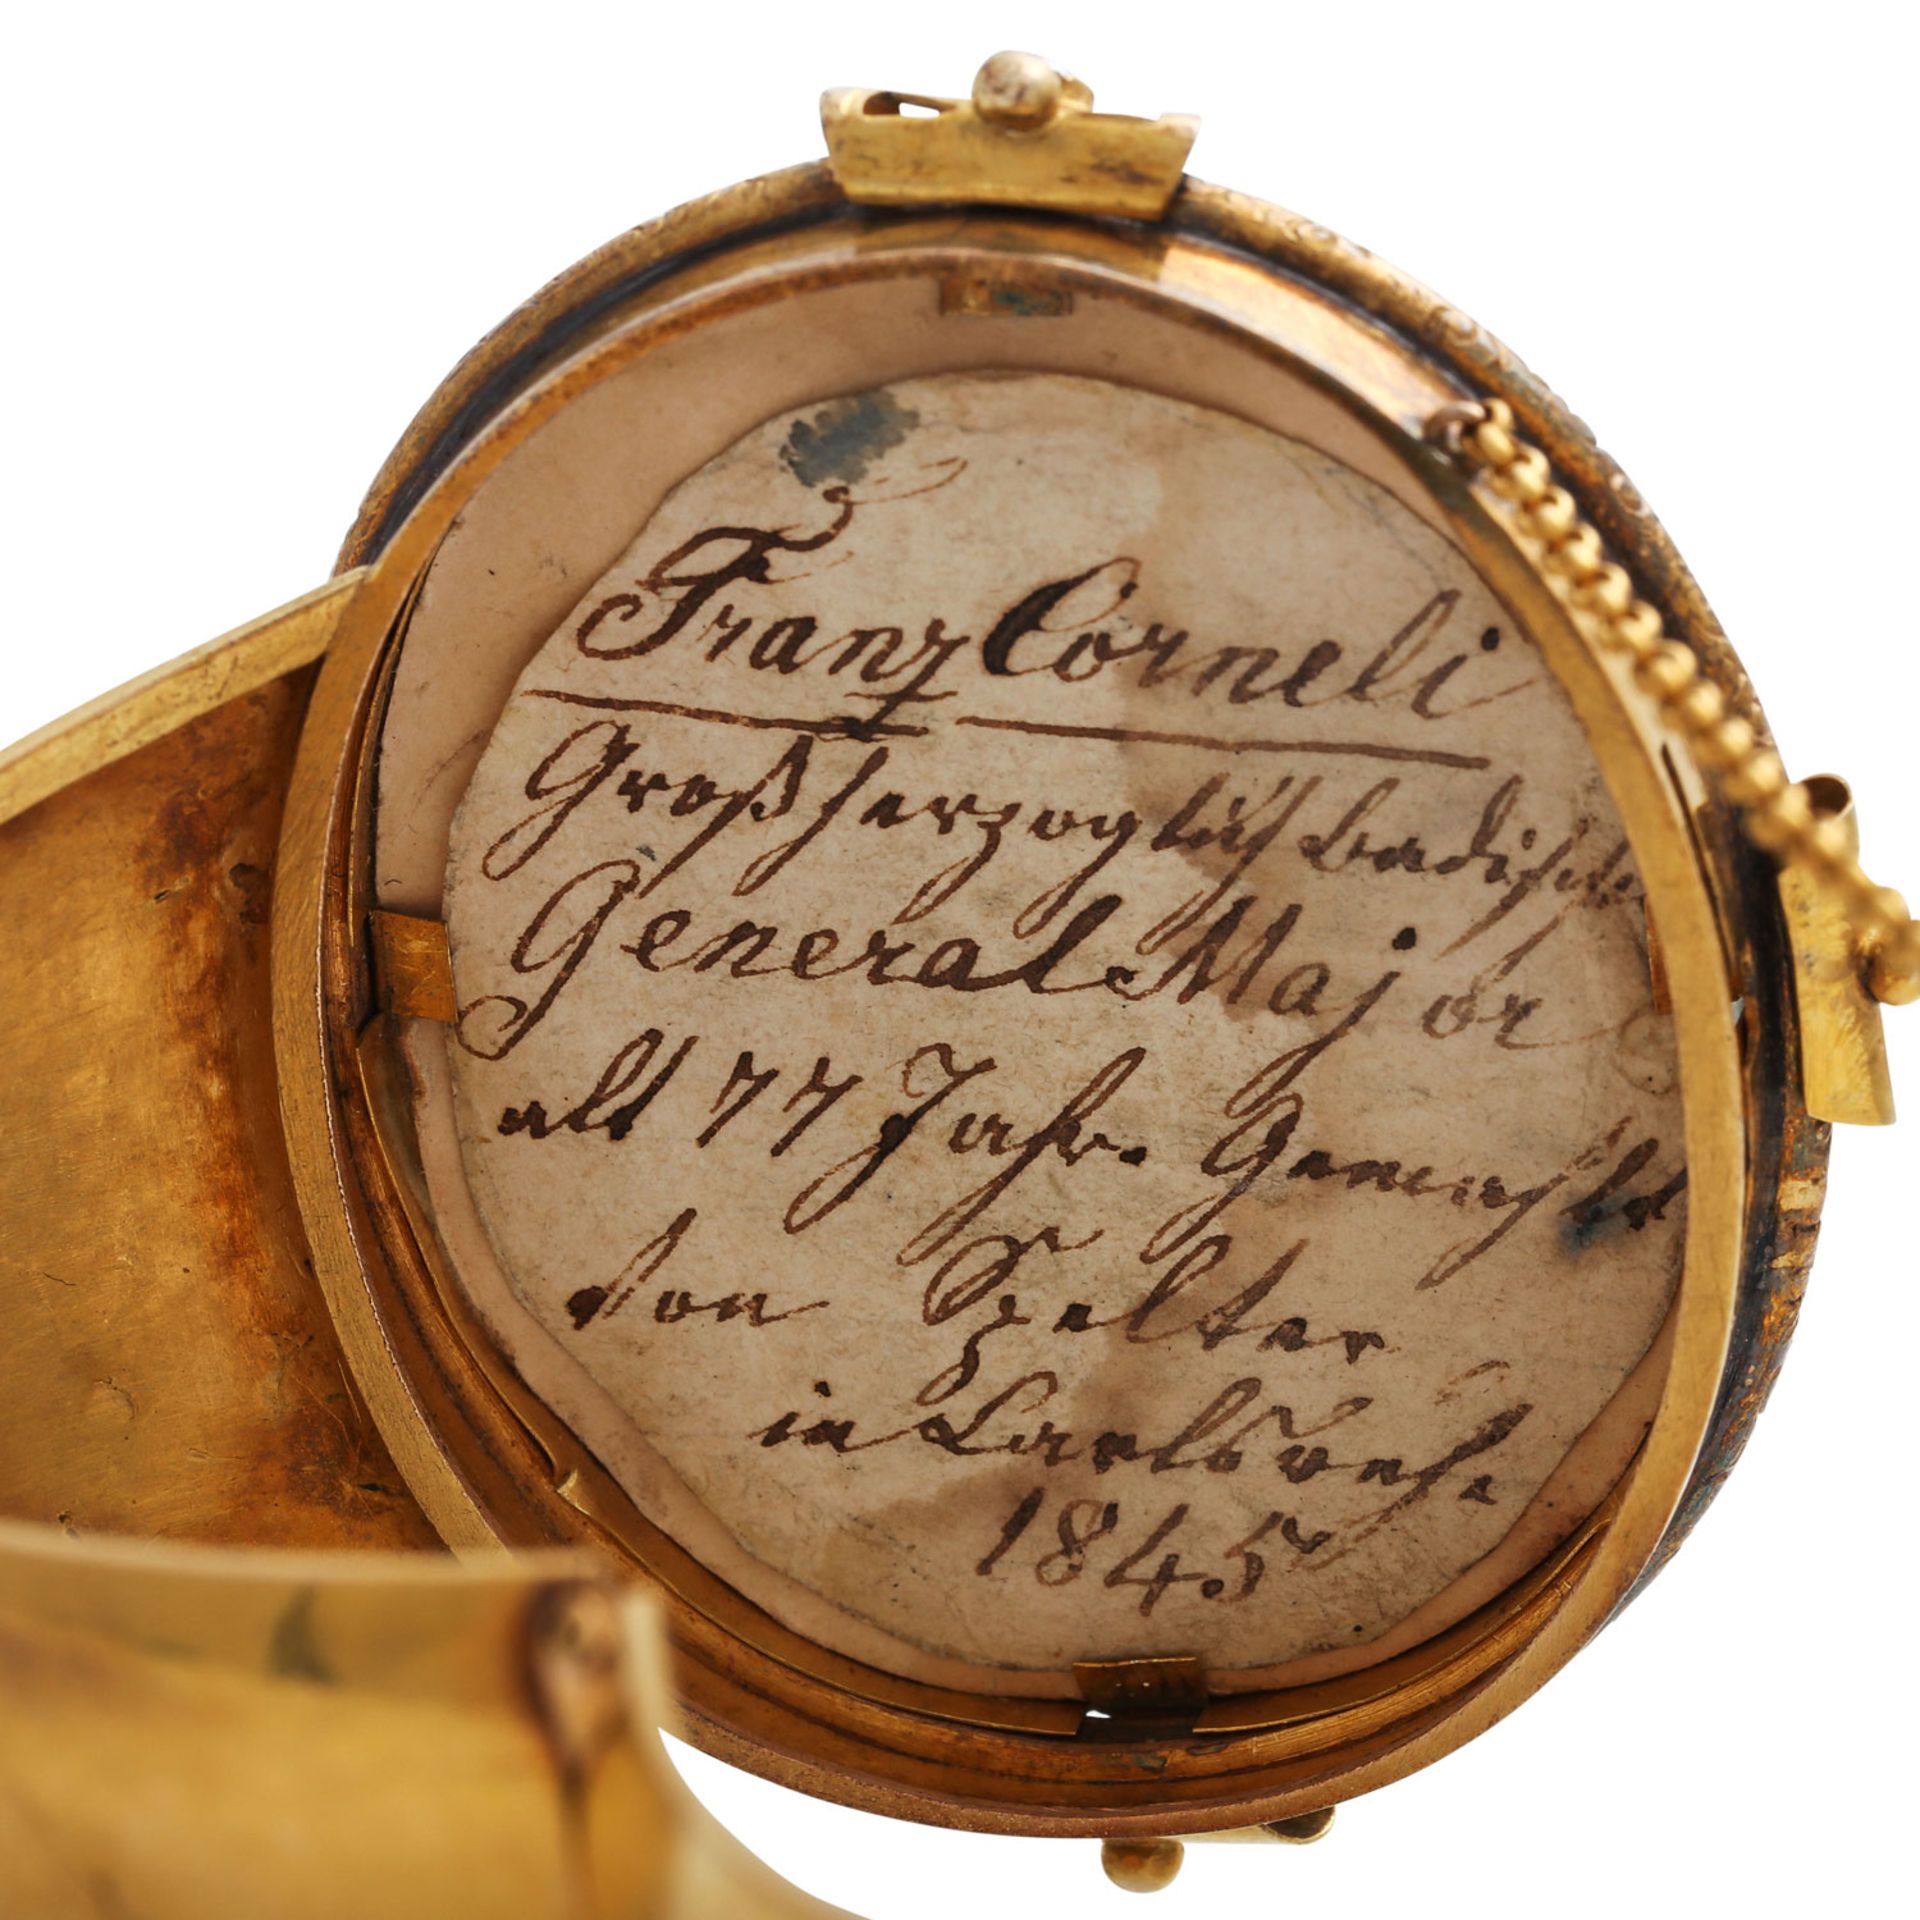 Franz Corneli
Großherzoglich badischer
General-Major
alt 77 Jahr. Gemahlt
von Szelter
in Carlsruh.
1845